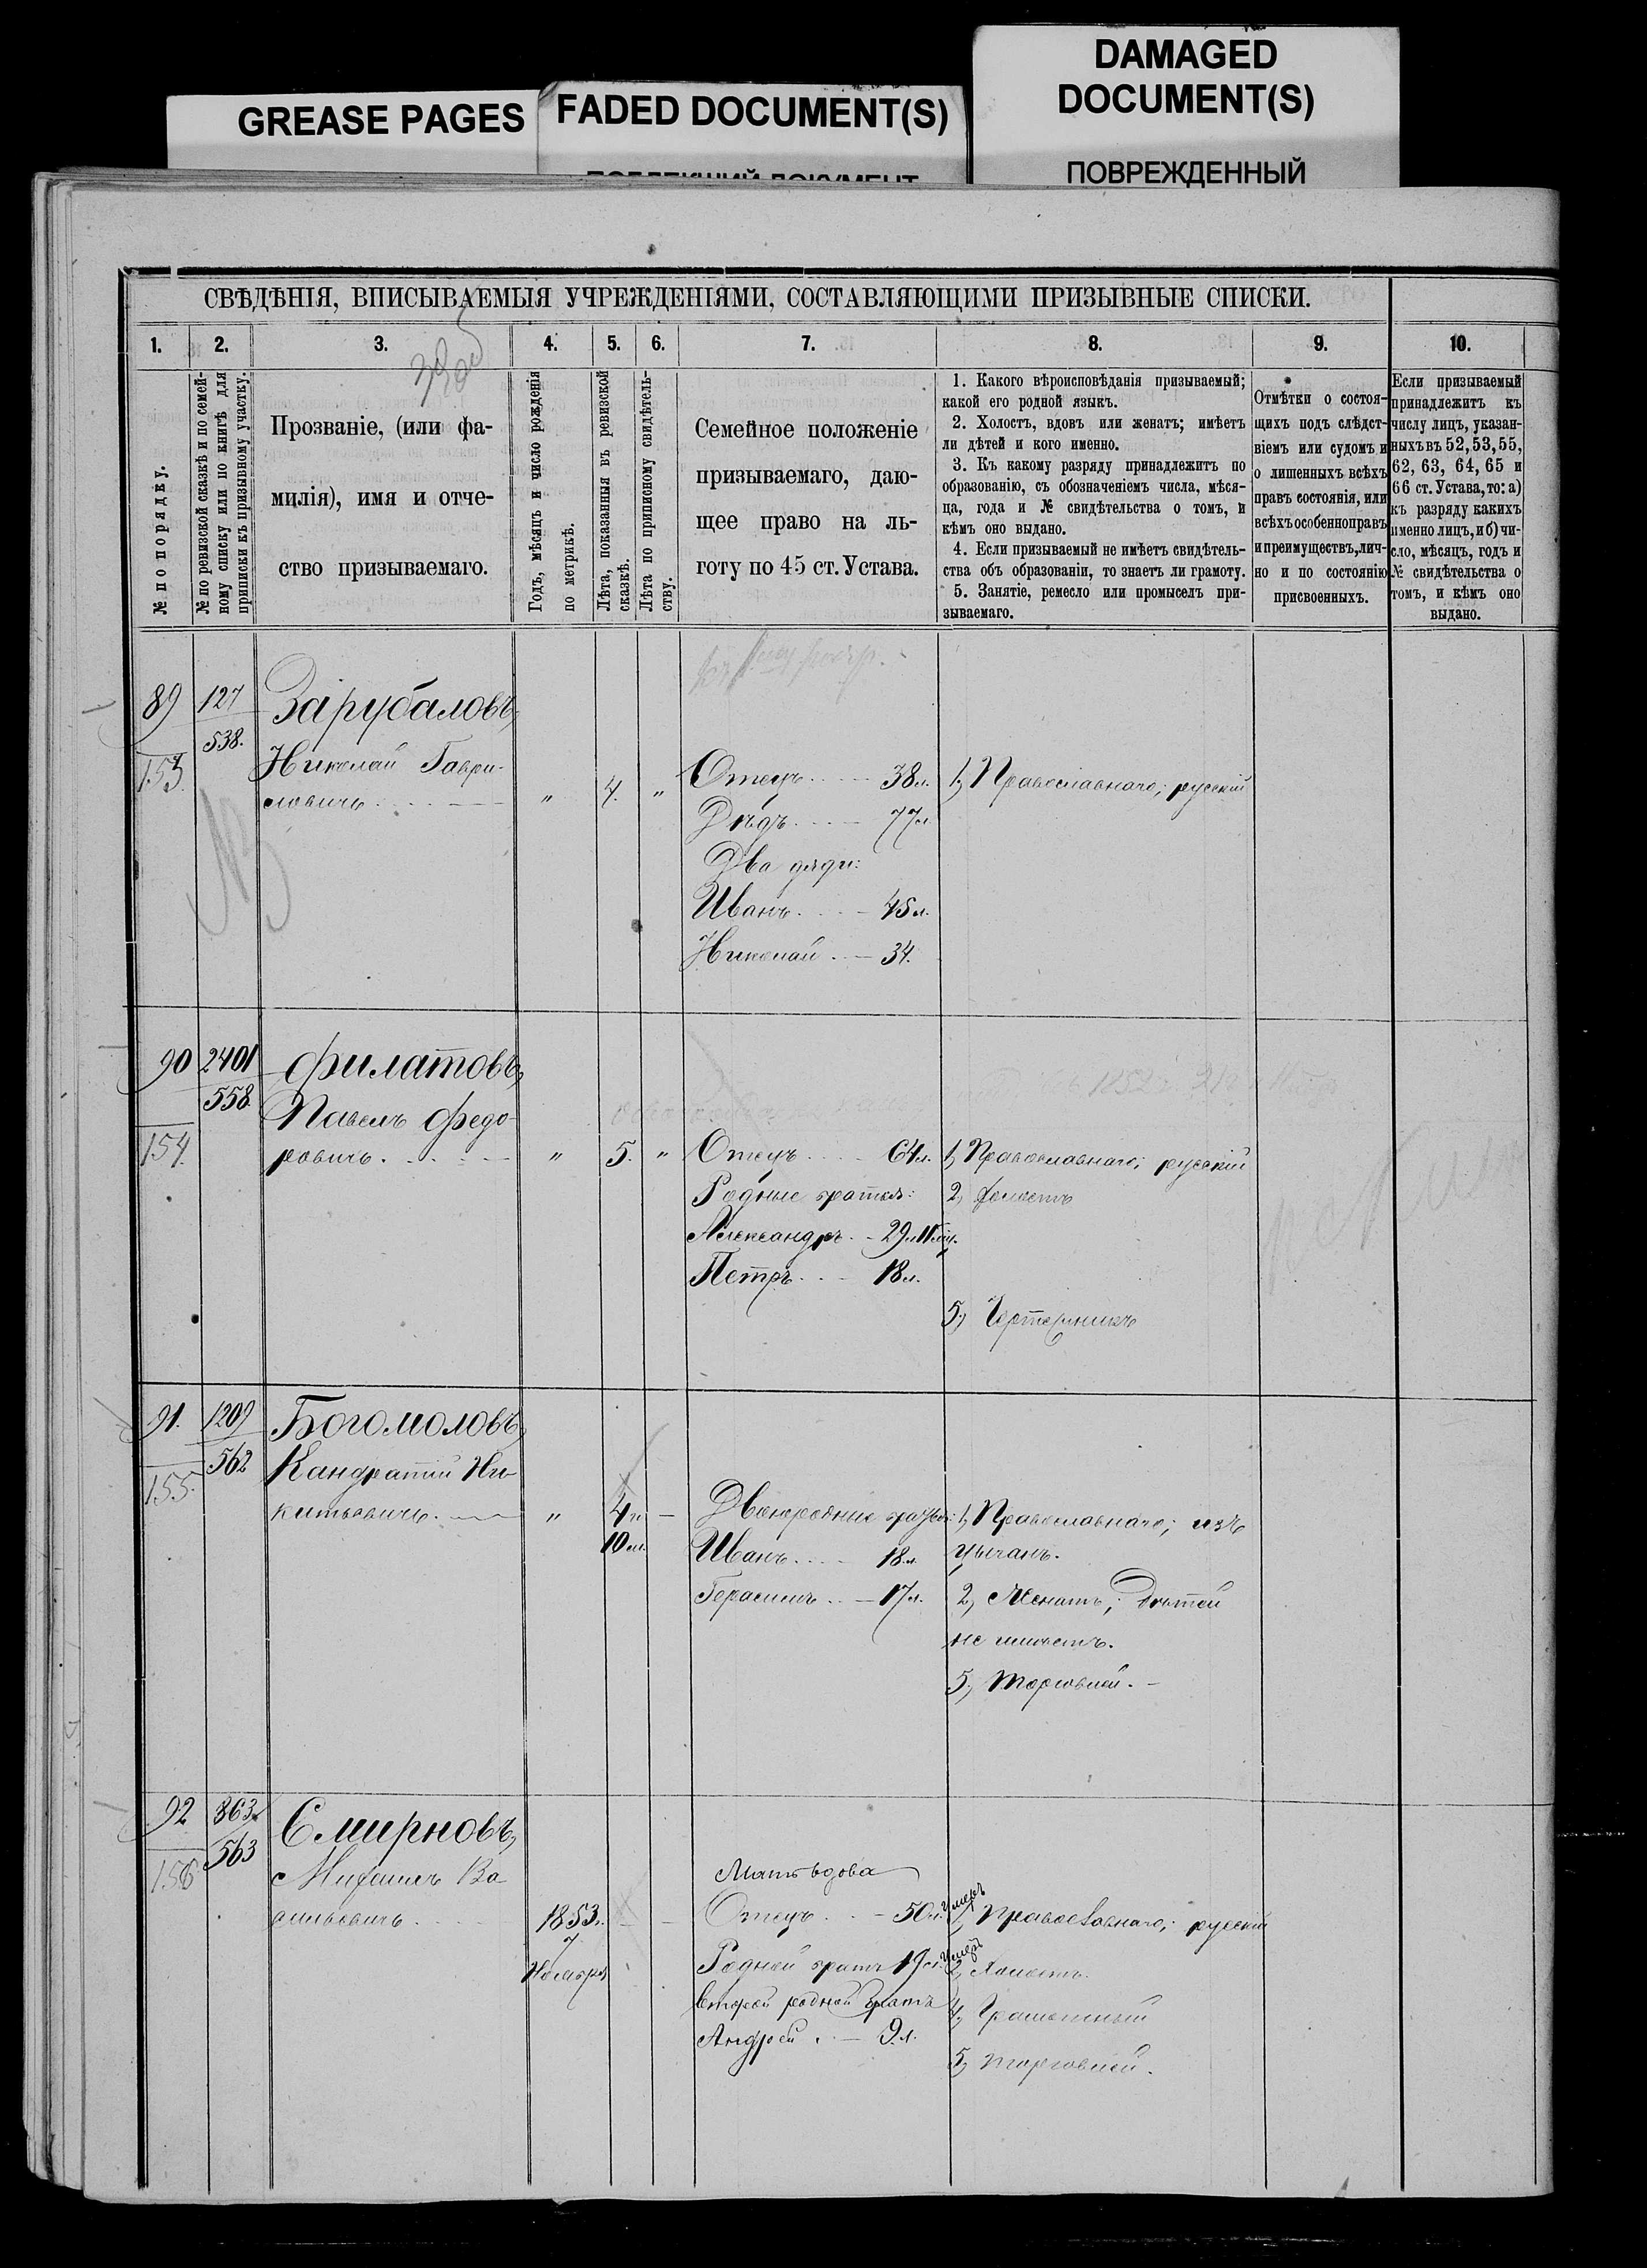 GREASE PAGES
FADED DOCUMENT(S)
DAMAGED
DOCUMENT(S)
ПОВРЕЖДЕННЫЙ
СВѢДѢНІЯ, ВПИСЫВАЕМЫЯ УЧРЕЖДЕНІЯМИ, СОСТАВЛЯЮЩИМИ ПРИЗЫВНЫЕ СПИСКИ.
1. 2. 3. 4. 5. 6. 7. 8. 9. 10.
№ по порядку.
№ по ревизской сказкѣ и по семей-
ному списку или по книгѣ для
приписки къ призывному участку.
Прозваніе, (или фа-
милія), имя и отче-
ство призываемаго.
Годъ, мѣсяцъ и число рожденія
по метрикѣ.
Лѣта, показанныя въ ревизской
сказкѣ.
Лѣта по приписному свидѣтель-
ству.
Семейное положеніе
призываемаго, даю-
щее право на ль-
готу по 45 ст. Устава.
1. Какого вѣроисповѣданія призываемый;
какой его родной языкъ.
2. Холостъ, вдовъ или женатъ; имѣетъ
ли дѣтей и кого именно.
3. Къ какому разряду принадлежитъ по
образованію, съ обозначеніемъ числа, мѣся-
ца, года и № свидѣтельства о томъ, и
кѣмъ оно выдано.
4. Если призываемый не имѣетъ свидѣтель-
ства объ образованіи, то знаетъ ли грамоту.
5. Занятіе, ремесло или промыселъ при-
зываемаго.
Отмѣтки о состоя-
щихъ подъ слѣдст-
віемъ или судомъ и
о лишенныхъ всѣхъ
правъ состоянія, или
всѣхъ особенно правъ
и преимуществъ, лич-
но и по состоянію
присвоенныхъ.
Если призываемый
принадлежитъ къ
числу лицъ, указан-
ныхъ въ 52, 53, 55,
62, 63, 64, 65 и
66 ст. Устава, то: а)
къ разряду какихъ
именно лицъ, и б) чи-
сло, мѣсяцъ, годъ и
№ свидѣтельства о
томъ, и кѣмъ оно
выдано.
89
153
127
538.
Зарубаловъ,
Николай Гаври-
ловичъ
" 4. "
Отецъ 38 л.
Дѣдъ 77 л.
Два дяди:
Иванъ 45 л.
Николай 34.
1, Православнаго; русскій
90
154.
2401
558
Филатовъ,
Павелъ Федо-
ровичъ
" 5. "
Отецъ 64 л.
Родные братья:
Александръ 29 л.
Петръ 18 л.
1, Православнаго; русскій
2, Холостъ
5, Чертежникъ
91.
155.
1209
562
Богомоловъ,
Кандратій Ни-
китьевичъ
" 4 г. —
10 м.
Двоюродные братья:
Иванъ 18 л.
Герасимъ 17 л.
1, Православнаго; изъ
цыганъ.
2, Женатъ; дѣтей
не имѣетъ.
5, Торговлей.
92
156
363
563
Смирновъ,
Михаилъ Ва-
сильевичъ
1853 г.
7
Ноября
Мать вдова
Отецъ 50 л. Умеръ
Родной братъ 19 л. Умеръ
Второй родной братъ
Андрей 9 л.
1, Православнаго; русскій
2, Холостъ.
4, Грамотный
5, Торговлей.